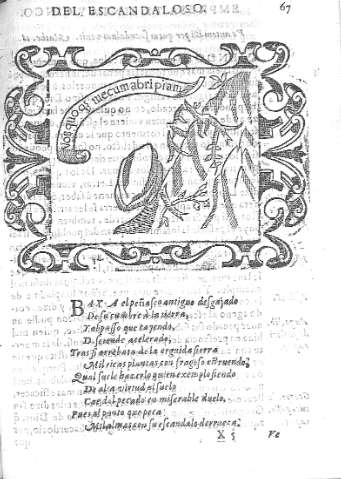 DEL ESCANDALOSO.
67
Nosquoq; mecum abripiam
BAXA el peñasco antiguo desgajado
De su cumbre à la tierra,
Y al passo que cayendo,
Desciende acelerado,
Tras si arrebata de la erguida sierra
Mil ricas plantas con fragoso estruendo;
Qual suele hazerlo quien exemplo siendo
De alta virtud al suelo
Cae del pecado en miserable duelo,
Pues al punto que peca
Mil almas con su escandalo derrueca.
X 5
Ve